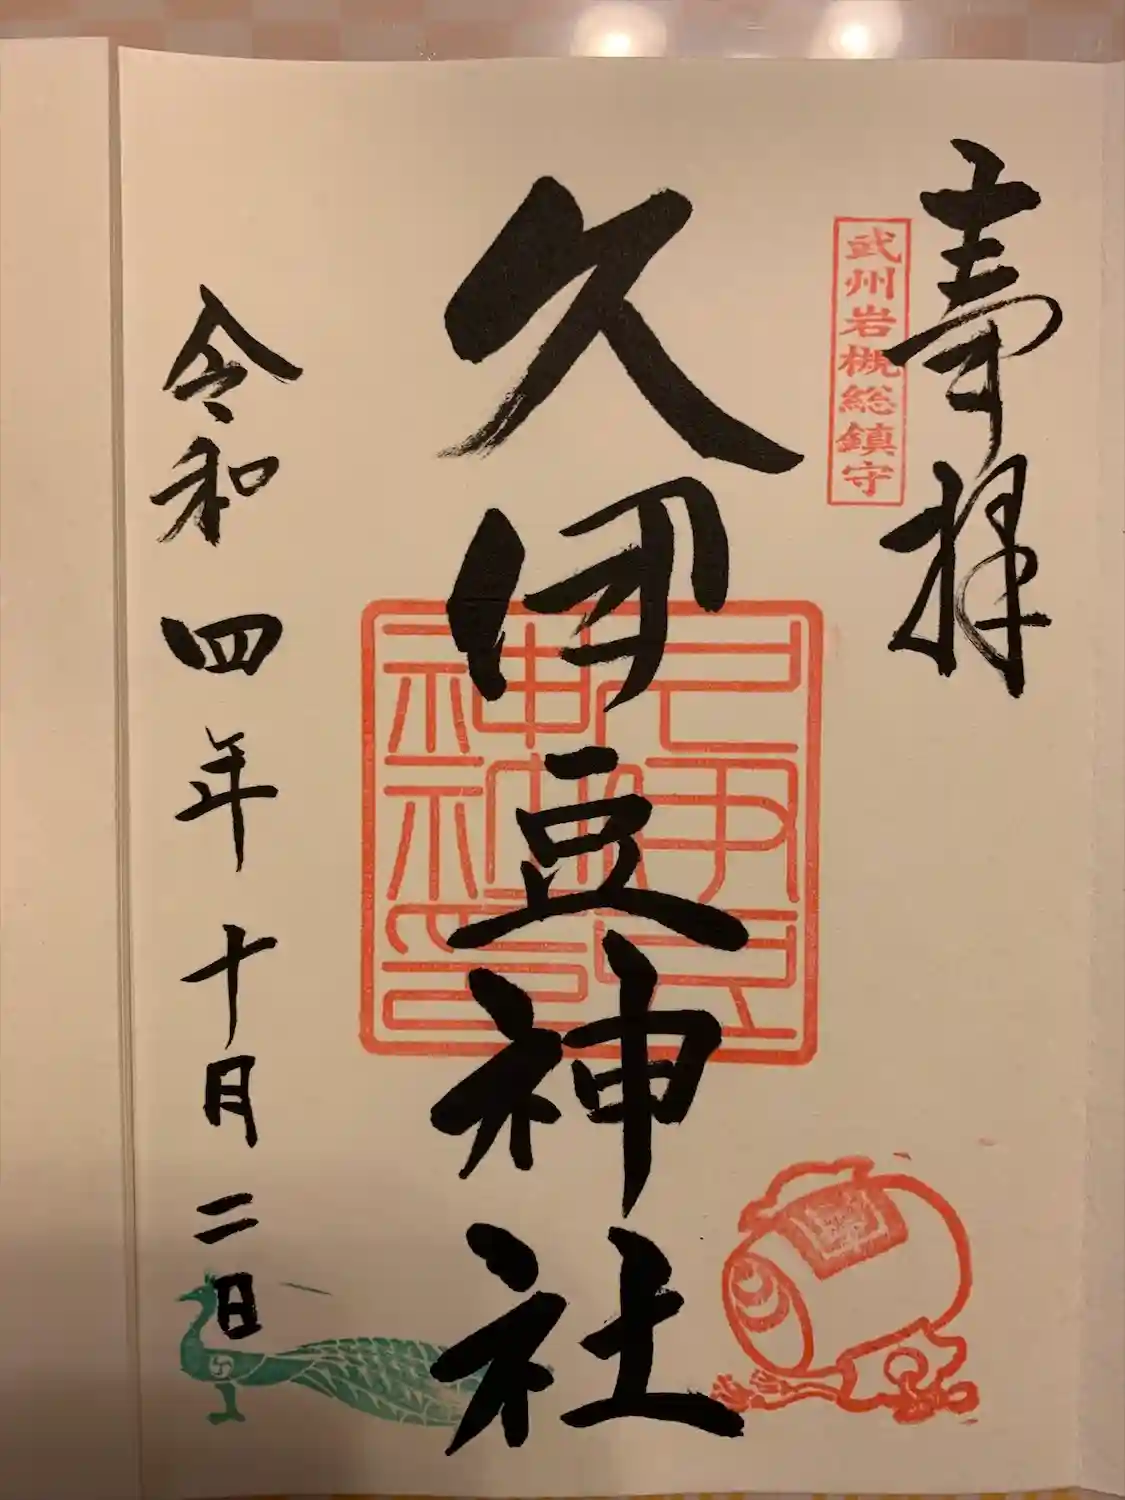 壽拝
武州岩槻総鎮守
久伊豆神社
久伊豆
神社印
令和四年十月二日